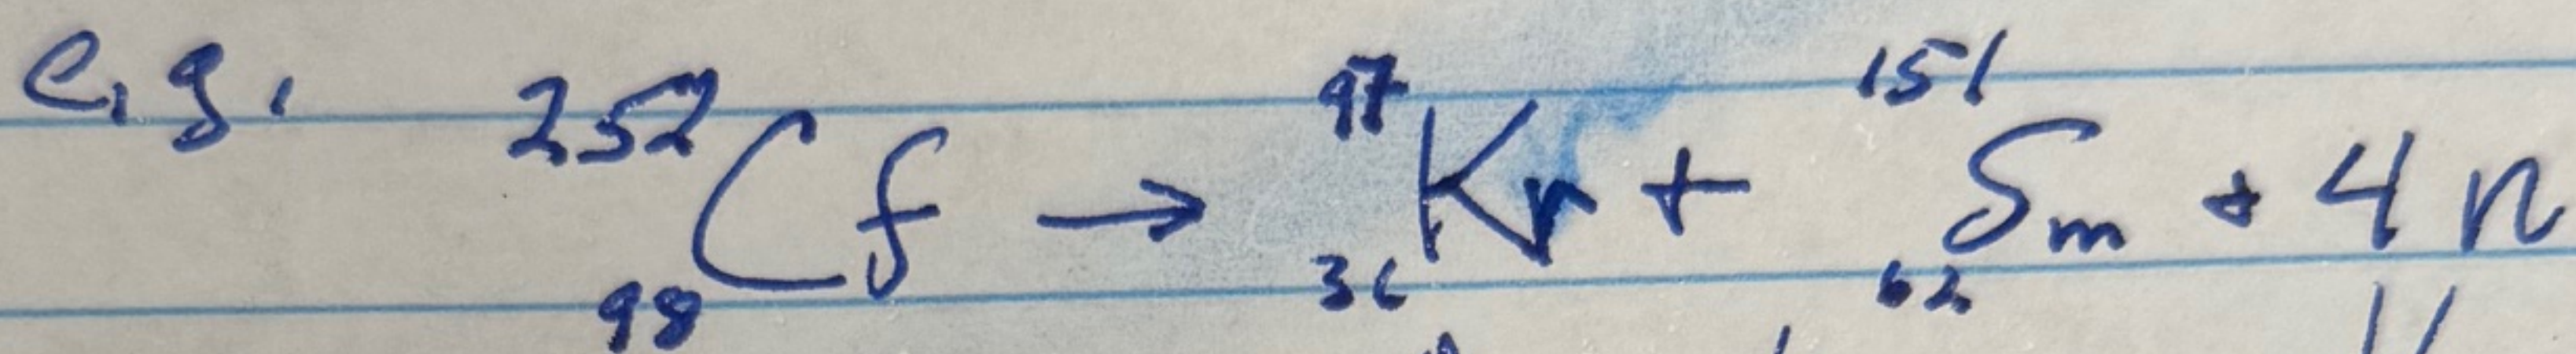 e.g. ²⁵²₉₈Cf → ⁹⁷₃₆Kr + ¹⁵¹₆₂Sm + 4n